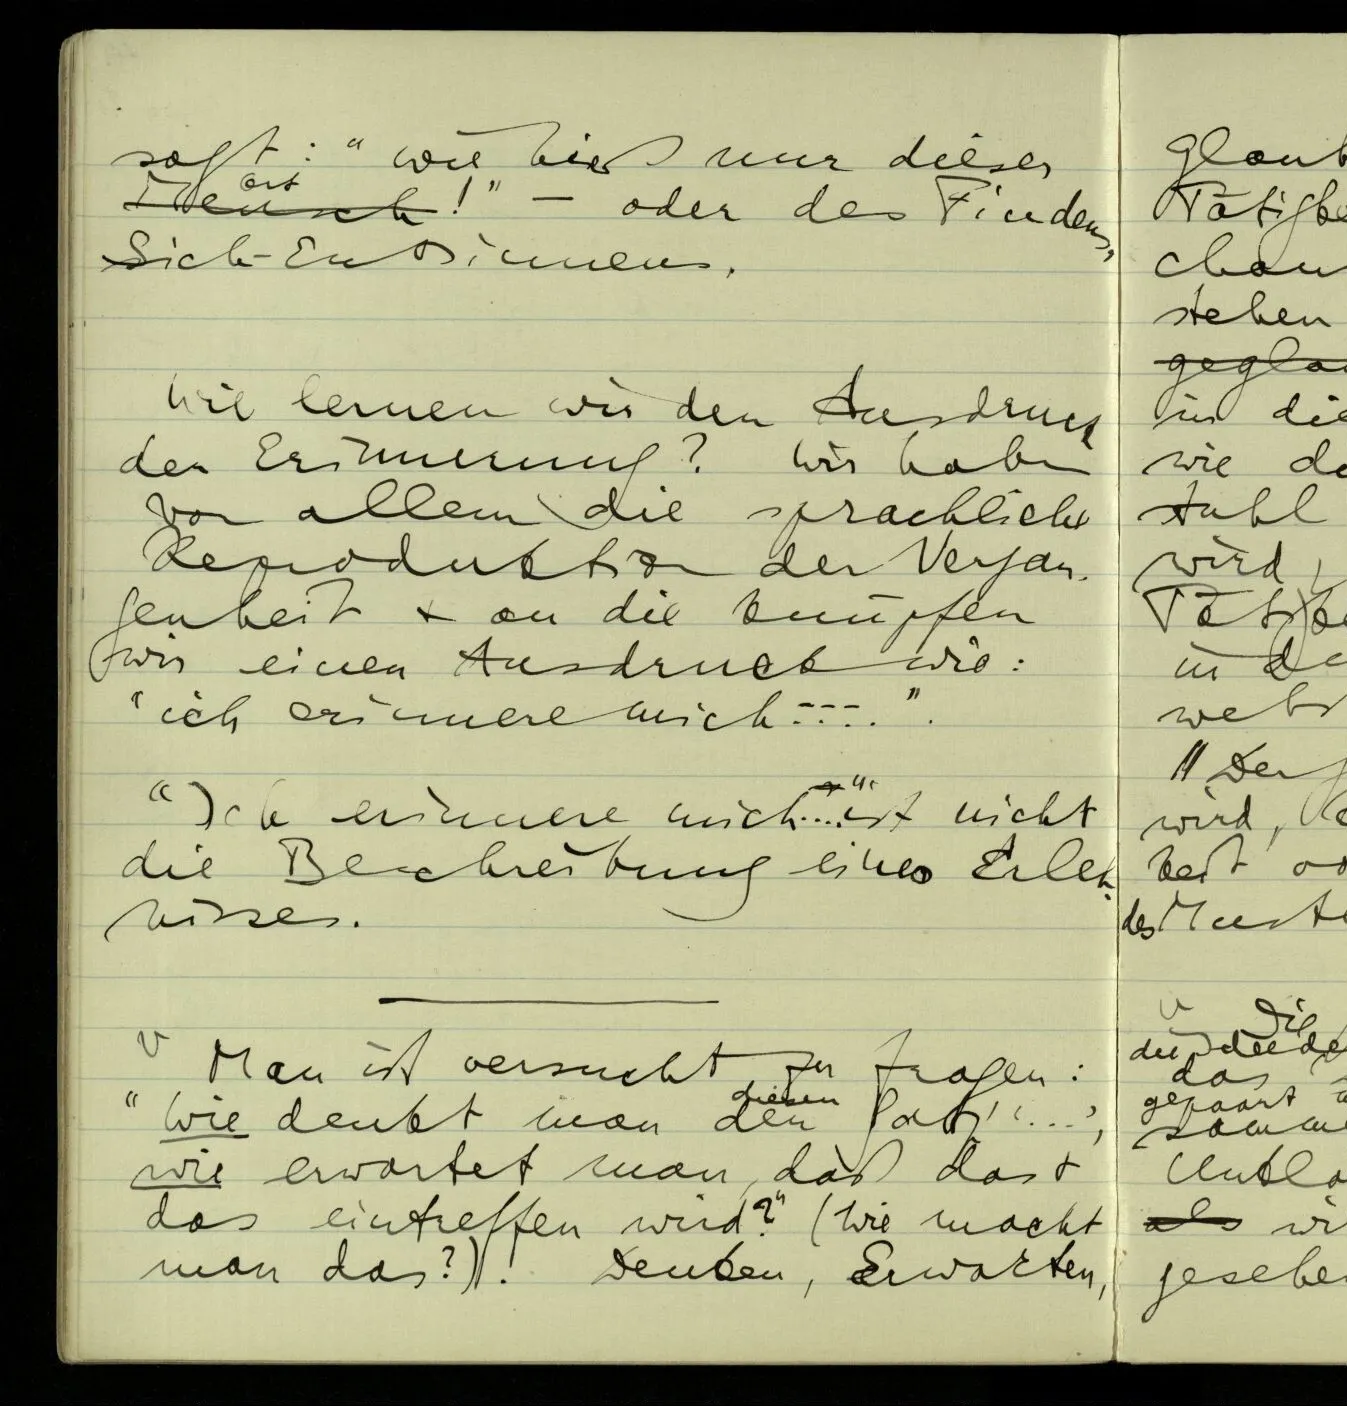 sagt: "wie hieß nur dieser
Mensch ort!" – oder des Findens,
Sich-Entsinnens.
Wie lernen wir den Ausdruck
der Erinnerung? Wir haben
vor allem die sprachliche
Reproduktion der Vergan-
genheit + an die knüpfen
wir einen Ausdruck wie:
"ich erinnere mich ....".
"Ich erinnere mich..." ist nicht
die Beschreibung eines Erleb-
nisses.
V Man ist versucht zu fragen:
"Wie denkt man den diesen Satz '...',
wie erwartet man, daß das +
das eintreffen wird?" (Wie macht
man das?)! Denken, Erwarten,
glaub
Tätigke
chan
stehen
gegla
in die
wie de
stuhl
wird,
Tätigke
in de
webs
"Der
wird,
keit
des Muste
V Die
das
gepaart
samme
Entla
als wi
gesehe